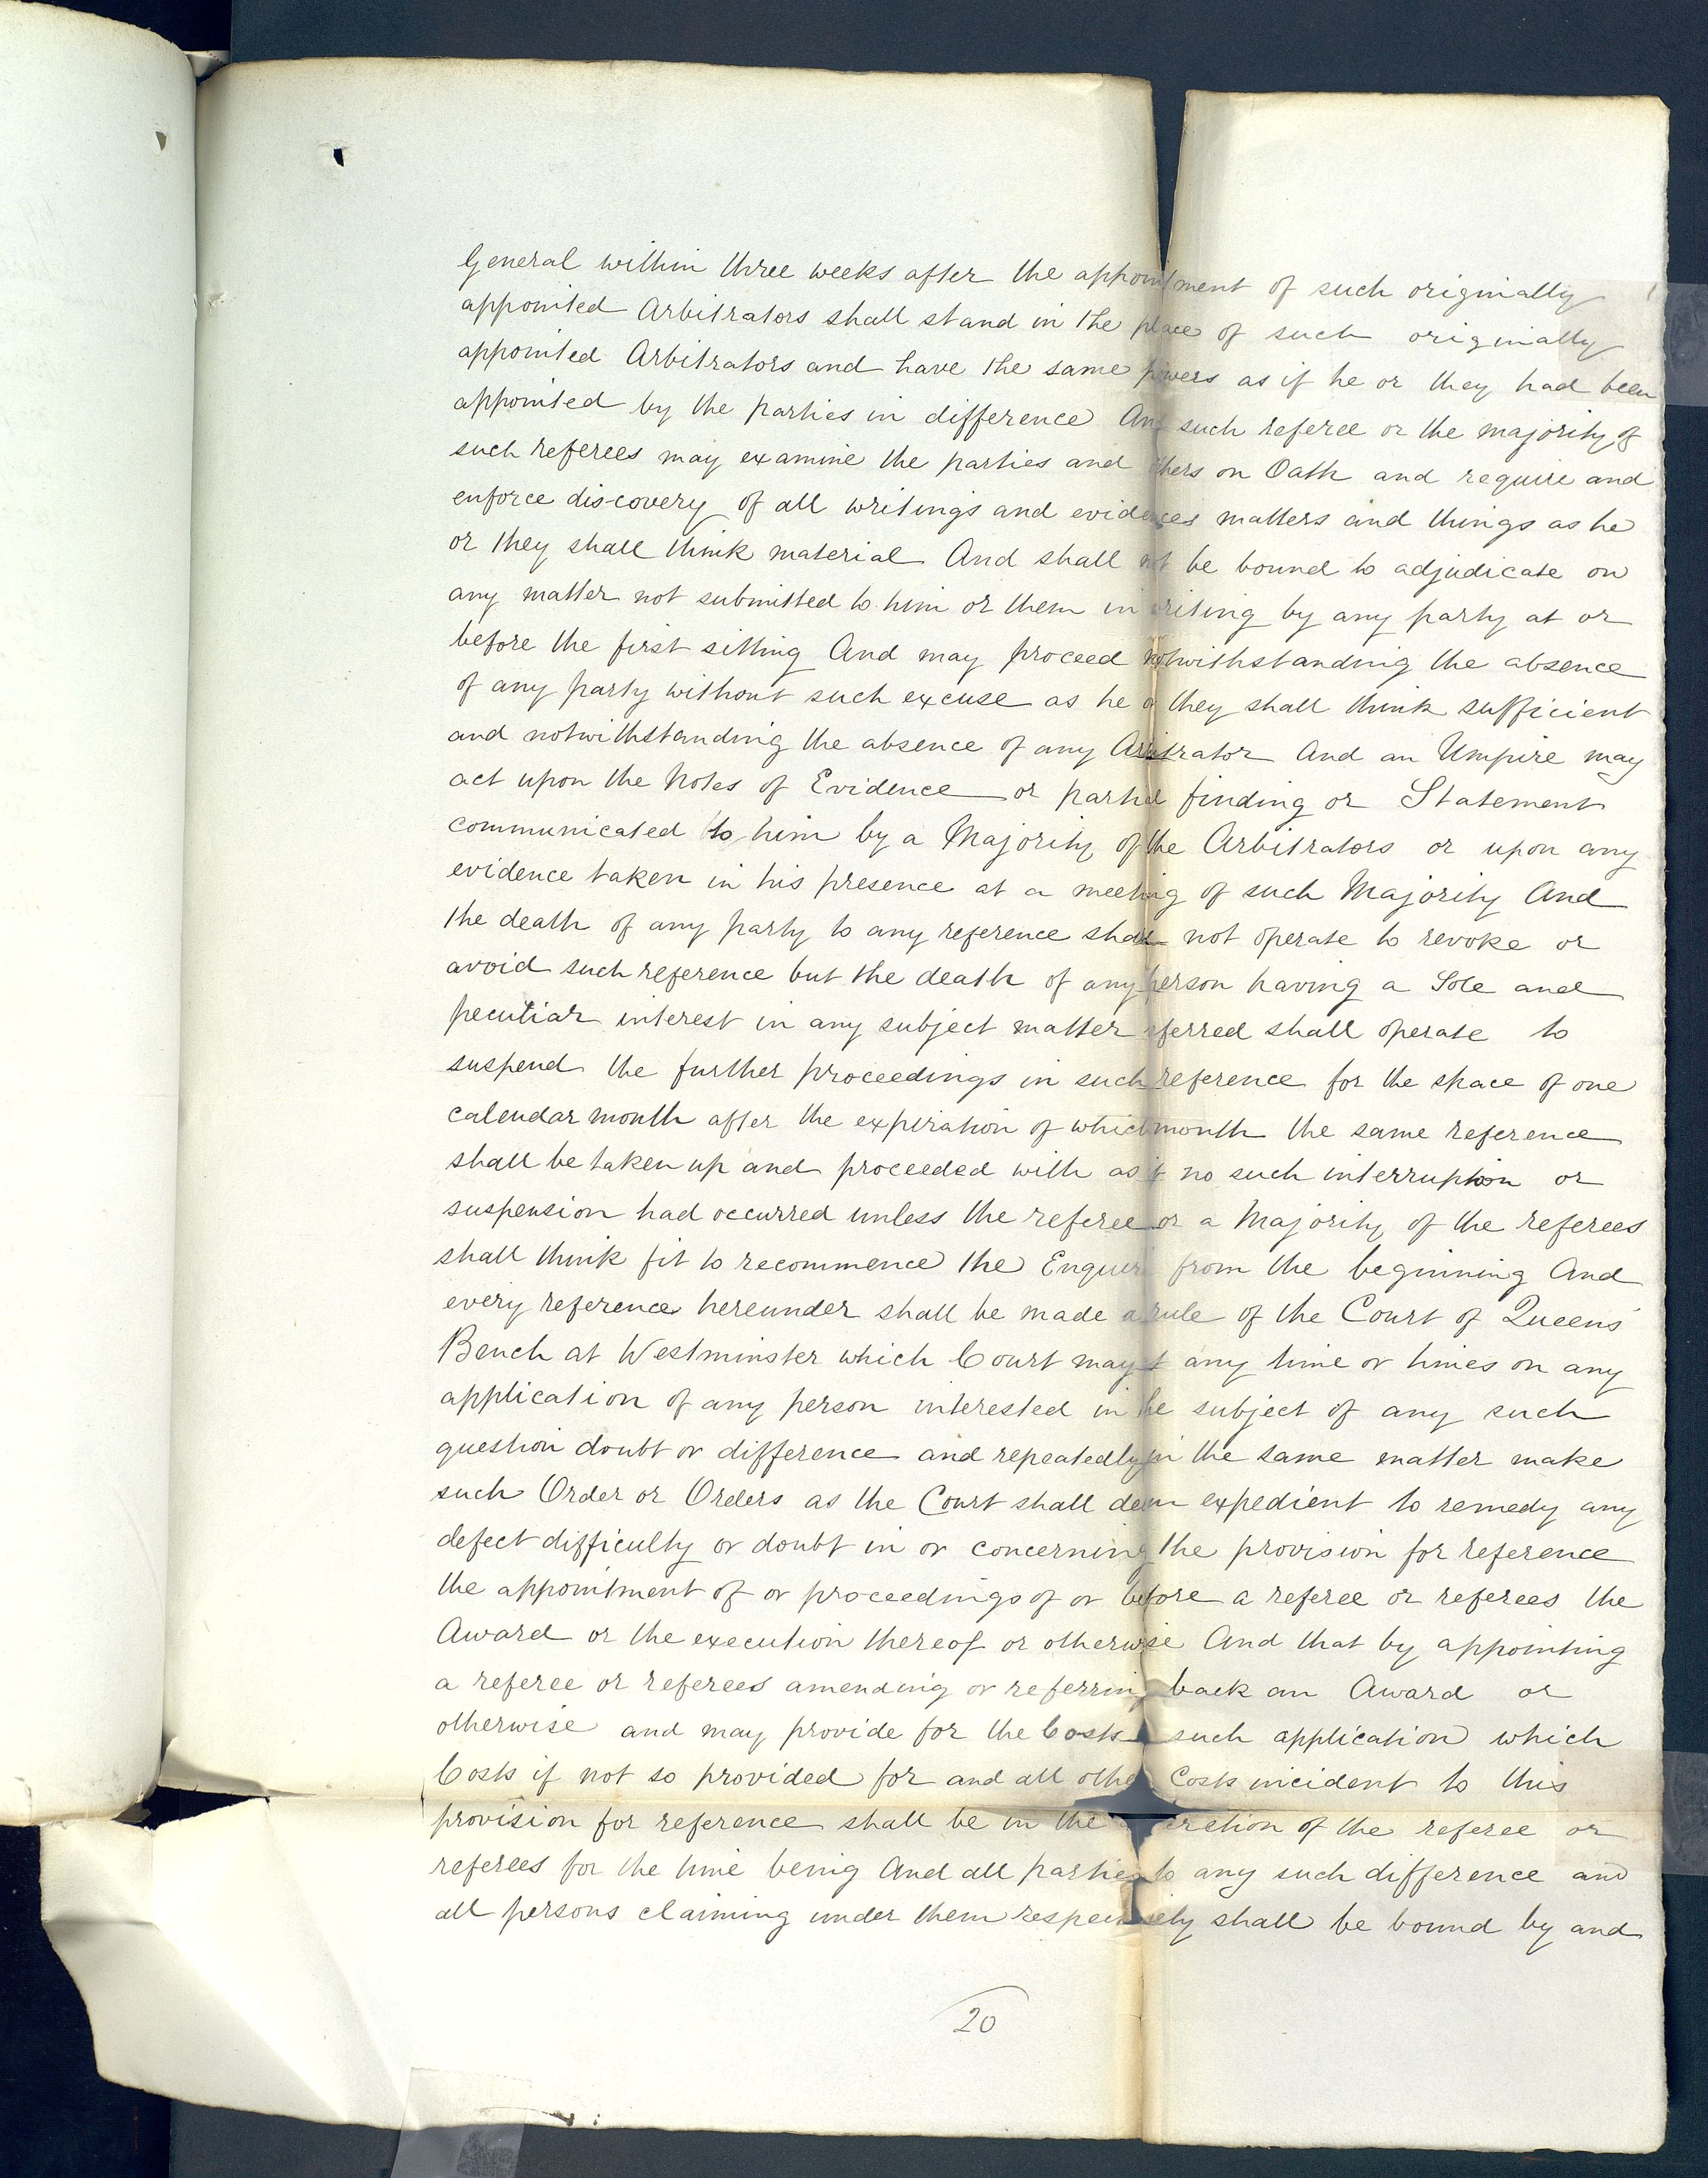 General within three weeks after the appointment of such originally
appointed Arbitrators shall stand in the place of such originally
appointed Arbitrators and have the same powers as if he or they had been
appointed by the parties in difference And such referee or the majority of
such referees may examine the parties and others on Oath and require and
enforce discovery of all writings and evidences matters and things as he
or they shall think material And shall not be bound to adjudicate on
any matter not submitted to him or them in writing by any party at or
before the first sitting And may proceed notwithstanding the absence
of any party without such excuse as he or they shall think sufficient
and notwithstanding the absence of any Arbitrator And an Umpire may
act upon the Notes of Evidence or partial finding or Statement
communicated to him by a Majority of the Arbitrators or upon any
evidence taken in his presence at a meeting of such Majority And
the death of any party to any reference shall not operate to revoke or
avoid such reference but the death of any person having a Sole and
peculiar interest in any subject matter referred shall operate to
suspend the further proceedings in such reference for the space of one
calendar month after the expiration of which month the same reference
shall be taken up and proceeded with as if no such interruption or
suspension had occurred unless the referee or a Majority of the referees
shall think fit to recommence the Enquiry from the beginning And
every reference hereunder shall be made a rule of the Court of Queens
Bench at Westminster which Court may at any time or times on any
application of any person interested in the subject of any such
question doubt or difference and repeatedly in the same matter make
such Order or Orders as the Court shall deem expedient to remedy any
defect difficulty or doubt in or concerning the provision for reference
the appointment of or proceedings of or before a referee or referees the
Award or the execution thereof or otherwise And that by appointing
a referee or referees amending or referring back an Award or
otherwise and may provide for the Costs such application which
Costs if not so provided for and all other Costs incident to this
provision for reference shall be in the discretion of the referee or
referees for the time being And all parties to any such difference and
all persons claiming under them respectively shall be bound by and
20